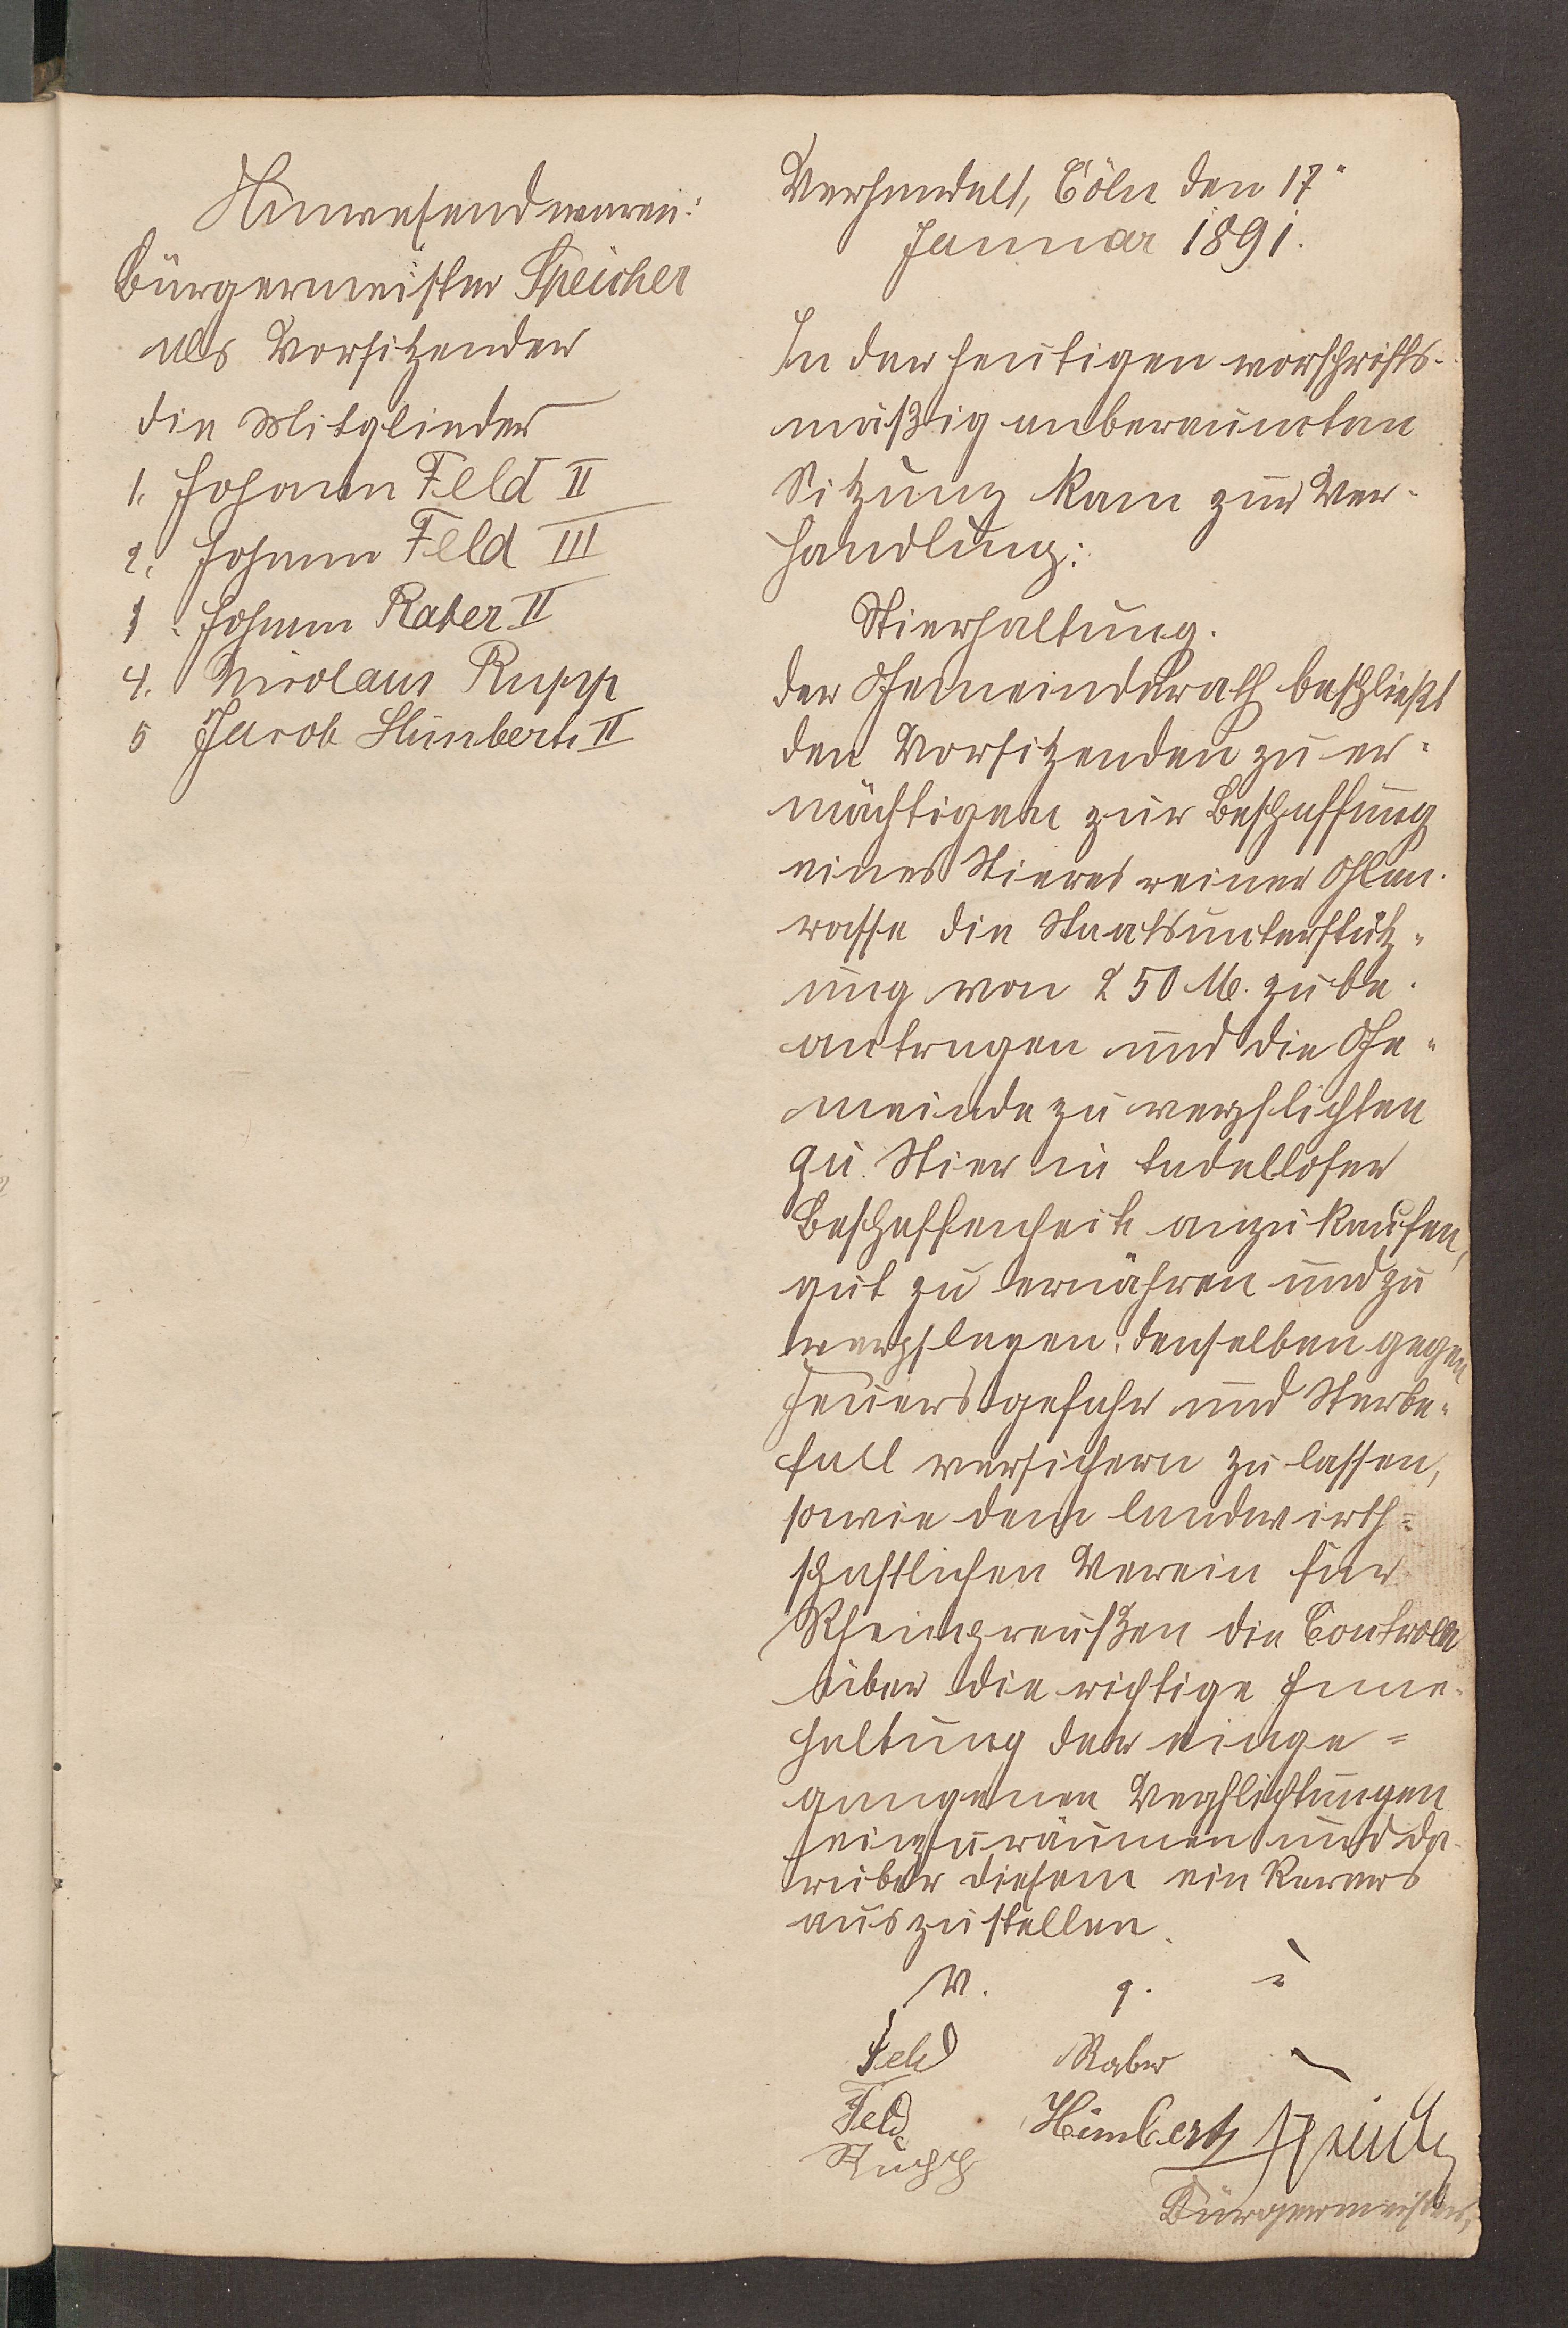 Anwesend waren:
Bürgermeister Speicher
als Vorsitzender
die Mitglieder
1. Johann Feld II
2. Johann Feld III
3. Johann Raber II
4. Nicolaus Rupp
5 Jacob Himbert II
Verhandelt, Cöln den 17"
Januar 1891.
In der heutigen vorschrifts-
mäßig anberaumten
Sitzung kam zur Ver-
handlung:
Stierhaltung.
Der Gemeinderath beschließt
den Vorsitzenden zu er-
mächtigen zur Beschaffung
eines Stieres reiner Glan-
rasse die Staatsunterstütz-
ung von 250 M. zu be-
antragen und die Ge-
meinde zu verpflichten
qu. Stier in tadelloser
Beschaffenheit anzukaufen,
gut zu ernähren und zu
verpflegen, denselben gegen
Feuersgefahr und Sterbe-
fall versichern zu lassen,
sowie dem landwirth=
schaftlichen Verein für
Rheinpreußen die Controle
über die richtige Inne-
haltung der einge=
gangenen Verpflichtungen
einzuräumen und da-
rüber diesem ein Revers
auszustellen.
v. g. u
Feld Raber
Feld Himbert Speicher
Rupp
Bürgermeister